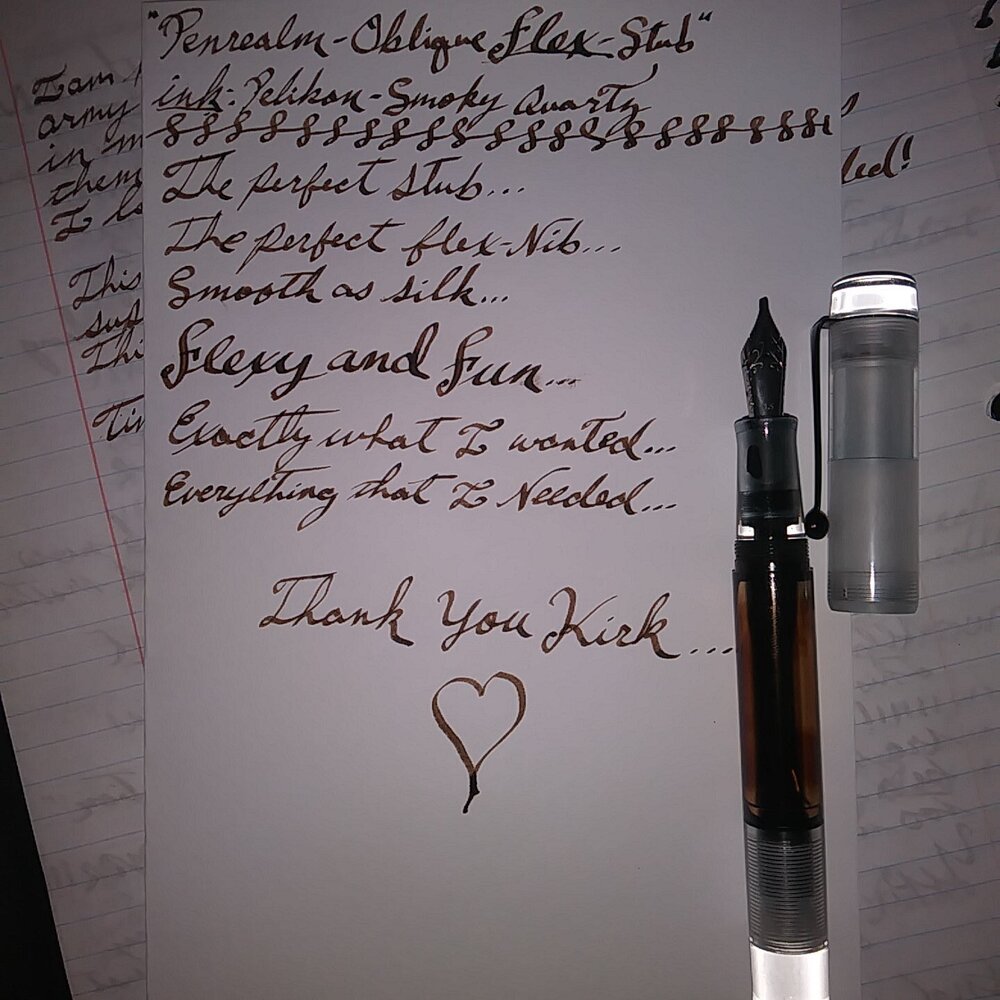 "Penrealm-Oblique Flex-Stub"
ink: Pelikan-Smoky Quartz
The perfect stub...
The perfect flex-Nib...
Smooth as silk...
Flexy and Fun...
Exactly what I wanted...
Everything that I Needed...
Thank You Kirk ...
I am
army
in
them
I
This
Thi